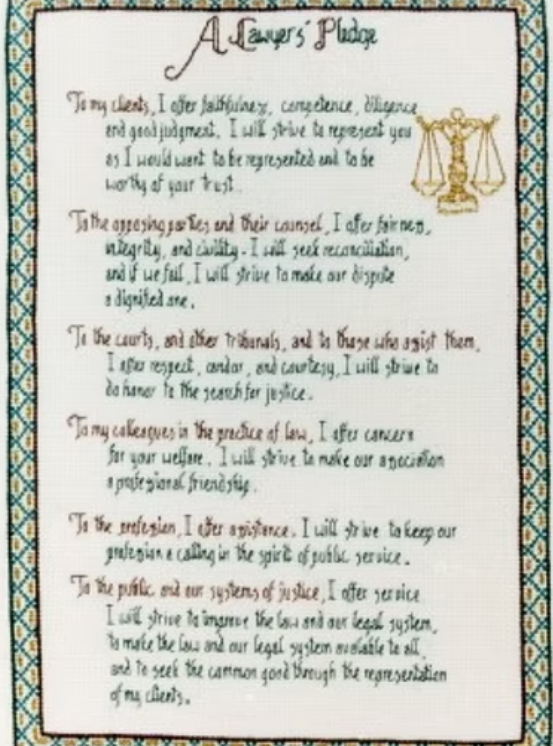 A Lawyers' Pledge
To my clients, I offer faithfulness, competence, diligence
and good judgment. I will strive to represent you
as I would want to be represented and to be
worthy of your trust.
To the opposing parties and their counsel, I offer fairness,
integrity, and civility. I will seek reconciliation,
and if we fail, I will strive to make our dispute
a dignified one.
To the courts, and other tribunals, and to those who assist them,
I offer respect, candor, and courtesy. I will strive to
do honor to the search for justice.
To my colleagues in the practice of law, I offer concern
for your welfare. I will strive to make our association
a professional friendship.
To the profession, I offer assistance. I will strive to keep our
profession a calling in the spirit of public service.
To the public and our systems of justice, I offer service.
I will strive to improve the law and our legal system,
to make the law and our legal system available to all,
and to seek the common good through the representation
of my clients.